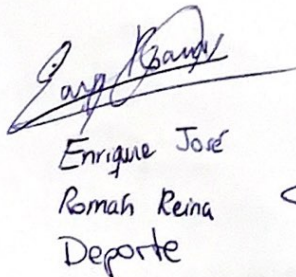 Enrique José
Román Reina
Deporte